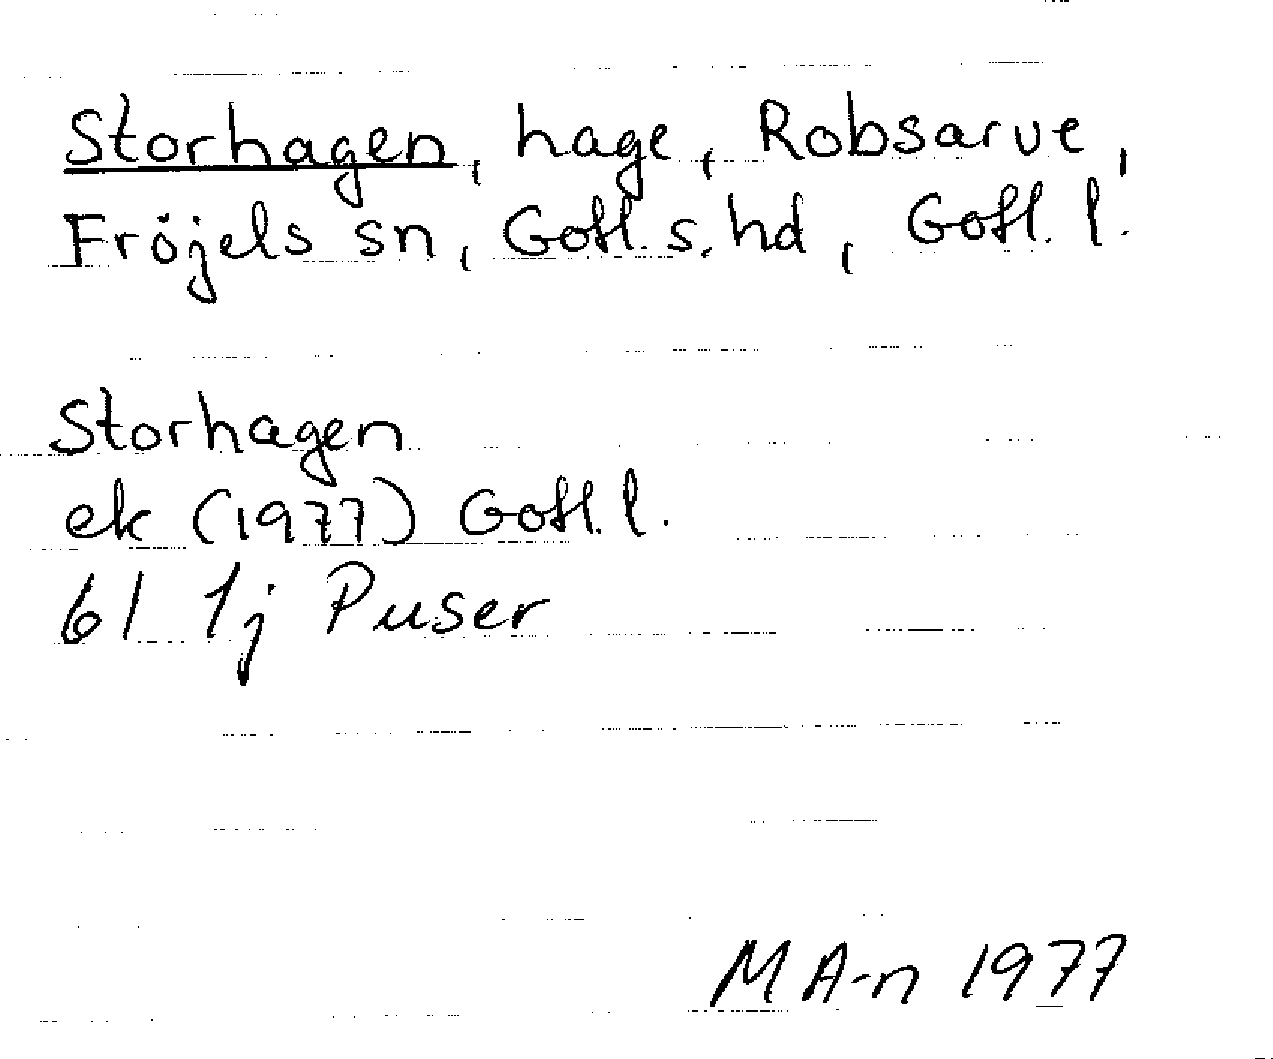 Storhagen, hage, Robsarve,
Fröjels sn, Gotl. s. hd, Gotl. l.
Storhagen
ek (1977) Gotl. l.
6I 1j Puser
M A-n 1977